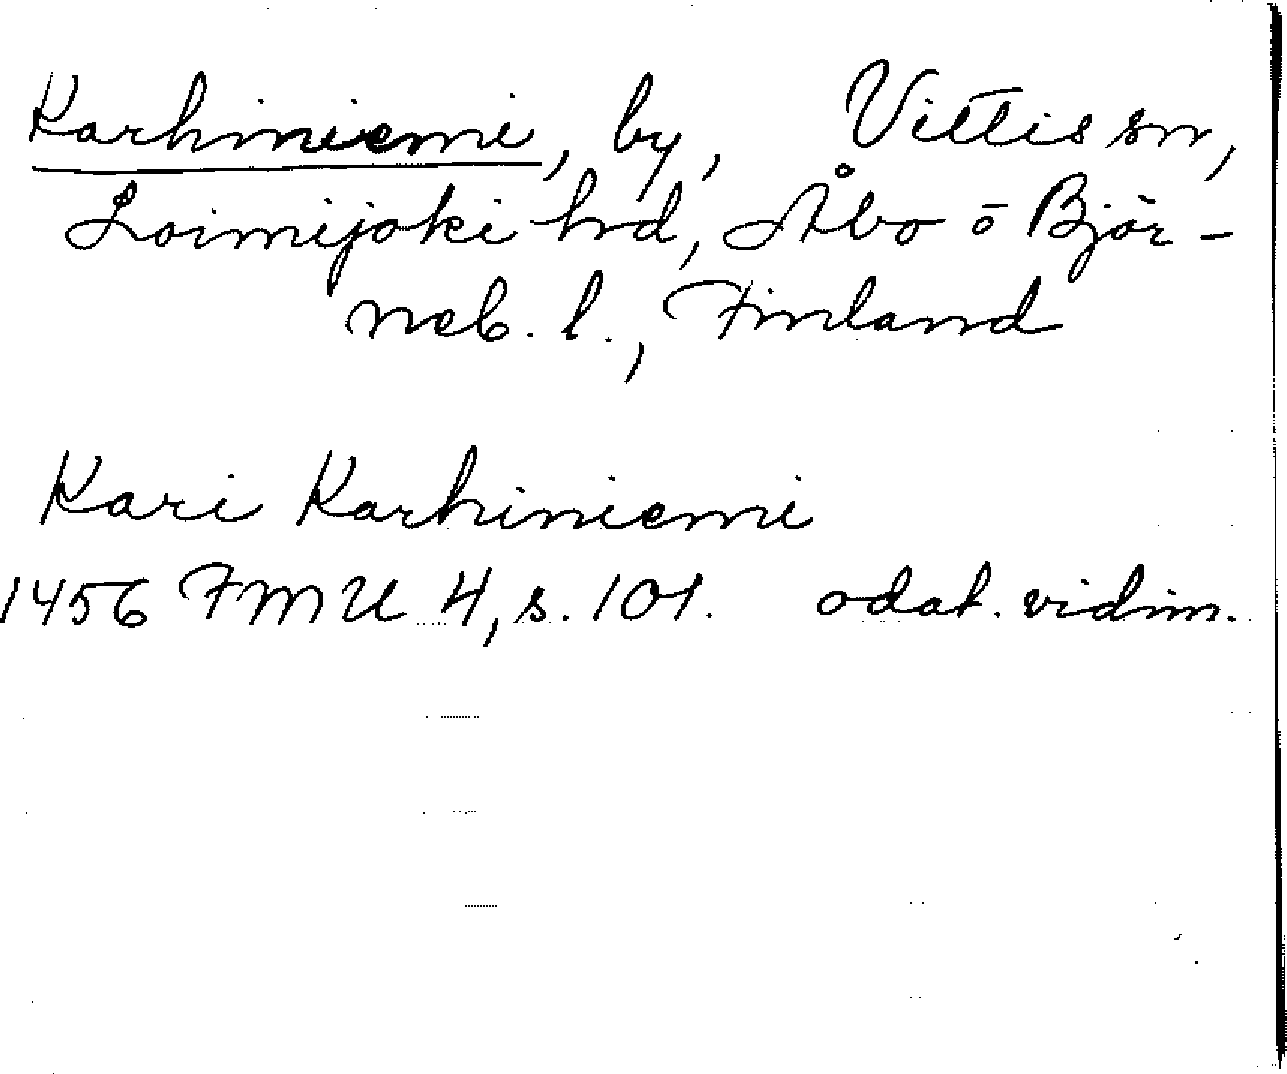 Karhiniemi, by, Vittis sn,
Loimijoki hrd, Åbo o Björ-
neb. l., Finland
Kari Karhiniemi
1456 FMU 4, s. 101. odat. vidim.